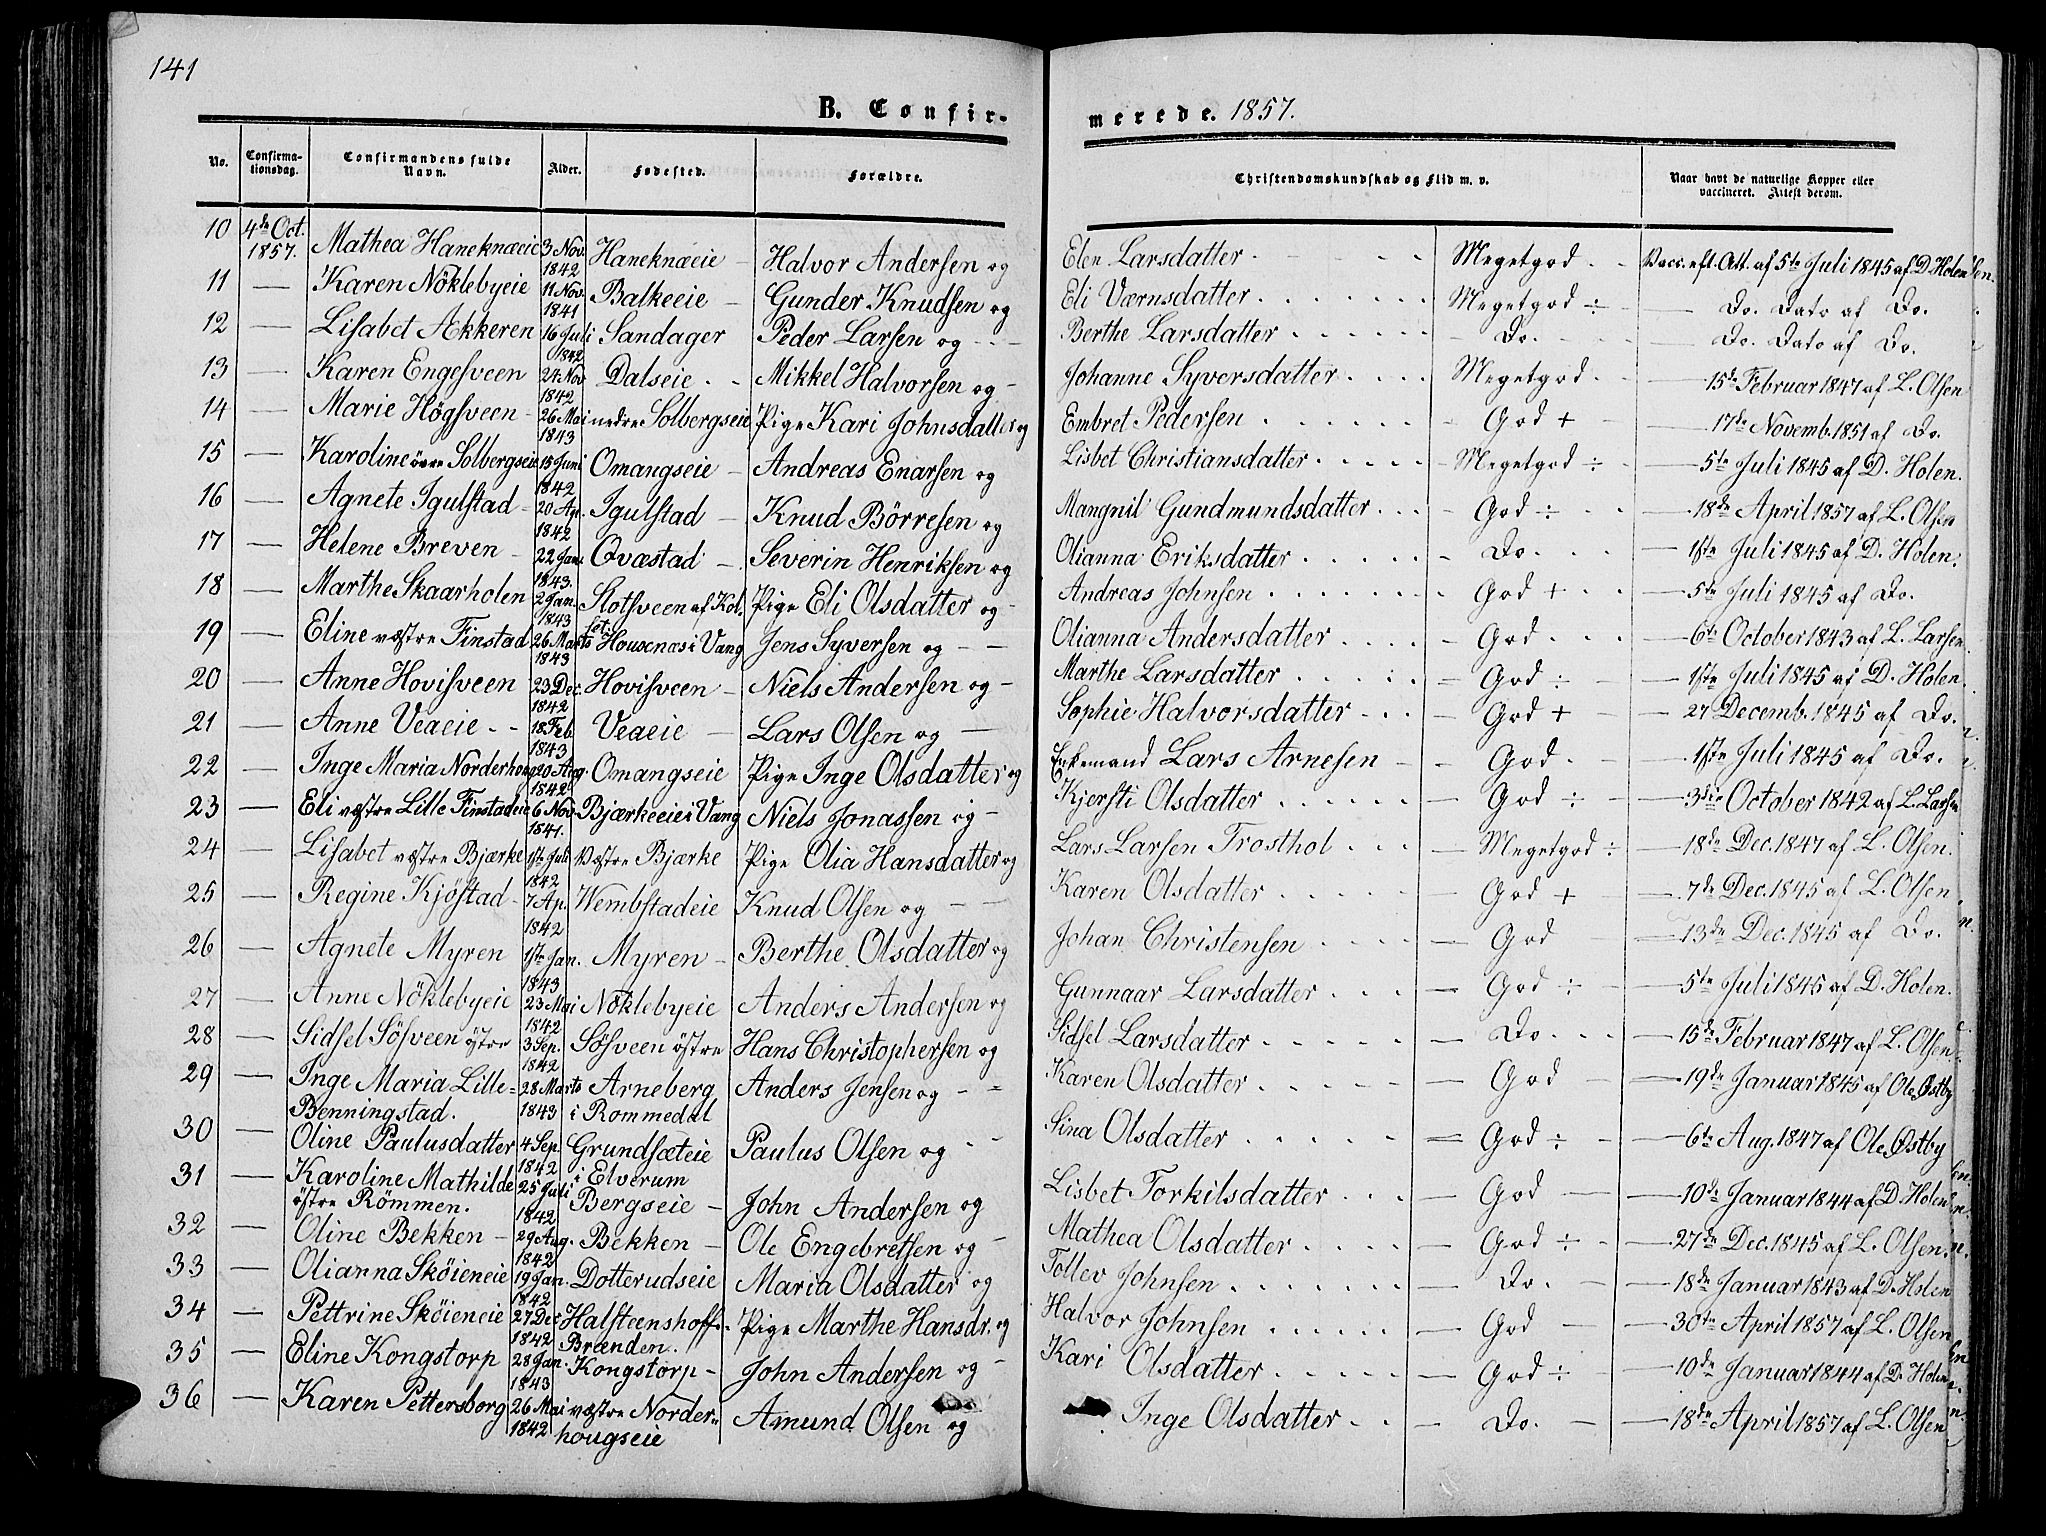 141
B. Confirmerede. 1857.
No. Confirmationsdag. Confirmandens fulde Navn. Alder. Fødested. Forældre. Christendomskundskab og Flid m. v. Naar havt de naturlige Kopper eller vaccineret. Attest derom.
10 4de Oct. 1857. Mathea Haneknæeie 3 Nov. 1842 Haneknæeie – Halvor Andersen og Elen Larsdatter Megetgod Vacc. eft. Att. af 5te Juli 1845 af D. Holen
11 — Karen Nöklebyeie 11 Nov. 1841 Balkeeie – Gunder Knudsen og Eli Værnsdatter Megetgod ÷ — Do. Dato af Do.
12 — Lisabet Ækkeren 16 Juli 1842 Sandager Peder Larsen og Berthe Larsdatter Do. — Do. Dato af Do.
13 — Karen Engesveen 24 Nov 1842 Dalseie Mikkel Halvorsen og Johanne Syversdatter Megetgod — 15de Februar 1847 af L. Olsen
14 — Marie Högsveen 26 Mai 1843 nedre Solbergseie Pige Kari Johnsdatter og Embret Pedersen God + — 17de Novemb. 1851 af Do.
15 — Karoline övre Solbergseie 15 Juni 1842 Omangseie – Andreas Enarsen og Lisbet Christiansdatter Megetgod ÷ — 5te Juli 1845 af D. Holen.
16 — Agnete Igulstad 20 Ap. 1842 Igulstad – Knud Börresen og Mangnil Gundmundsdatter God ÷ — 18de April 1857 af L. Olsen
17 — Helene Breven 22 Jan. 1843. Qvæstad – Severin Henriksen og Olianna Eriksdatter Do. — 1ste Juli 1845 af D. Holen.
18 — Marthe Skaarholen 2 Jan. 1843 Slotsveen af Kol. Pige Eli Olsdatter og Andreas Johnsen God + — 5te Juli 1845 af Do.
19 — Eline vestre Finstad 26 Marts 1843 Housenæs i Vang Jens Syversen og Olianna Andersdatter God — 6te October 1843 af L. Larsen
20 — Anne Hovisveen 23 Dec. 1842 Hovisveen – Niels Andersen og Marthe Larsdatter God ÷ — 1ste Juli 1845 af D. Holen.
21 — Anne Veaeie 18 Feb 1843 Veaeie – Lars Olsen og Sophie Halvorsdatter God + — 27 Decemb. 1845 af Do.
22 — Inge Maria Norderhoug 20 Aug. 1842 Omangseie Pige Inge Olsdatter og Enkemand Lars Arnesen God. — 1ste Juli 1845 af Do.
23 — Eli vestre Lille Finstadeie 6 Nov. 1841. Bjærkeeie i Vang Niels Jonassen og Kjersti Olsdatter God ÷ — 3die October 1842 af L. Larsen
24 — Lisabet vestre Bjærke 1ste Juli 1842 Vestre Bjærke Pige Olia Hansdatter og Lars Larsen Trosthol Megetgod ÷ — 18de Dec. 1847 af L. Olsen.
25 — Regine Kjöstad 7 Ap. 1842 Wembstadeie Knud Olsen og Karen Olsdatter God + — 7de Dec. 1845 af L. Olsen
26 — Agnete Myren 1ste Jan. 1843 Myren – Berthe Olsdatter og Johan Christensen God — 13de Dec. 1845 af Do.
27 — Anne Nöklebyeie 23 Mai 1842 Nöklebyeie Anders Andersen og Gunnaar Larsdatter God ÷ — 5te Juli 1845 af D. Holen.
28 — Sidsel Sösveen östre 3 Sep. 1842 Sösveen östre Hans Christophersen og Sidsel Larsdatter Do. — 15de Februar 1847 af L. Olsen
29 — Inge Maria Lille=Benningstad. 28 Marts 1843 Arneberg i Rommedal Anders Jensen og Karen Olsdatter God — 19de Januar 1845 af Ole Østby
30 — Oline Paulusdatter 4 Sep. 1842 Grundsæteie i Elverum Paulus Olsen og Sina Olsdatter God ÷ — 6te Aug. 1847 af Ole Østby
31 — Karoline Mathilde östre Römmen. 25 Juli 1842 Bergseie – John Andersen og Lisbet Torkilsdatter God — 10de Januar 1844 af D. Holen
32 — Oline Bekken 29 Aug. 1842 Bekken – Ole Engebretsen og Mathea Olsdatter God ÷ — 27de Dec. 1845 af L. Olsen.
33 — Olianna Sköieneie 19 Jan. 1842 Dotterudseie Maria Olsdatter og Tollev Johnsen Do. — 18de Januar 1843 af D. Holen
34 — Pettrine Sköieneie 27 Dec 1842 Halsteenshoff. Brænden. Pige Marthe Hansdr. og Halvor Johnsen God — 30te April 1857 af L. Olsen
35 — Eline Kongstorp 28 Jan. 1843 Kongstorp – John Andersen og Kari Olsdatter God ÷ — 10de Januar 1844 af D. Holen
36 — Karen Pettersborg 26 Mai 1842 vestre Norderhougseie Amund Olsen og Inge Olsdatter Do. — 18de April 1857 af L. Olsen